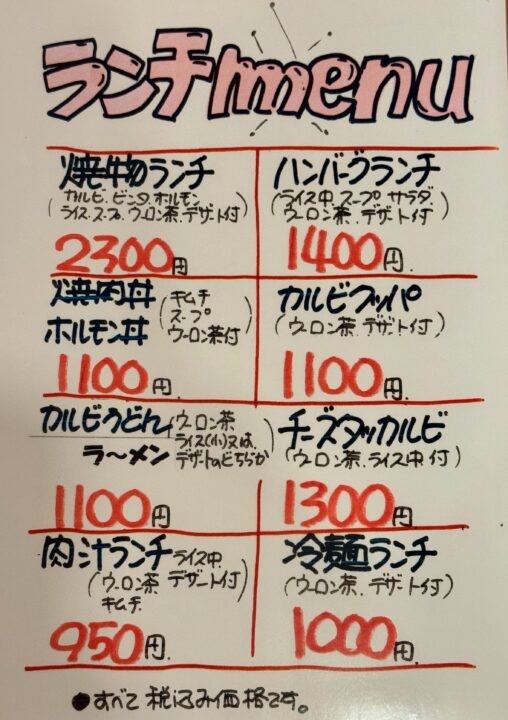 ランチmenu
焼物ランチ
(カルビ、ピンタ、ホルモン
ライス、スープ、ウーロン茶、デザート付)
2300円
ハンバーグランチ
(ライス中、スープ、サラダ、
ウーロン茶、デザート付)
1400円
焼肉丼
ホルモン丼
(キムチ
スープ
ウーロン茶付)
1100円
カルビクッパ
(ウーロン茶、デザート付)
1100円
カルビうどん
ラ〜メン
(ウーロン茶
ライス(小)又は、
デザートのどちらか)
1100円
チーズタッカルビ
(ウーロン茶、ライス中付)
1300円
肉汁ランチ
(ライス中、
ウーロン茶 デザート付)
キムチ
950円
冷麺ランチ
(ウーロン茶、デザート付)
1000円
●すべて税込み価格です。